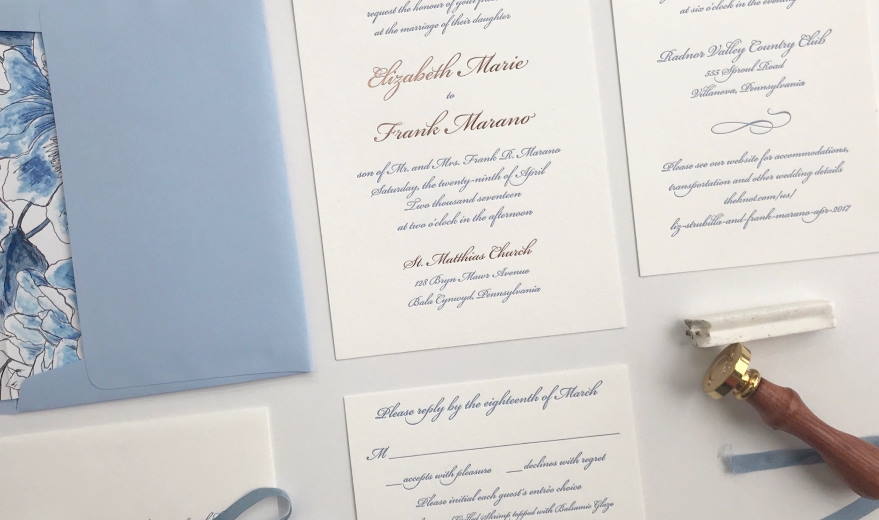 request the honour of your
at the marriage of their daughter
Elizabeth Marie
to
Frank Marano
son of Mr. and Mrs. Frank R. Marano
Saturday, the twenty-ninth of April
Two thousand seventeen
at two o'clock in the afternoon
St. Matthias Church
128 Bryn Mawr Avenue
Bala Cynwyd, Pennsylvania
at six o'clock in the evening
Radnor Valley Country Club
555 Sproul Road
Villanova, Pennsylvania
Please see our website for accommodations,
transportation and other wedding details
theknot.com/us/
liz-strubilla-and-frank-marano-apr-2017
Please reply by the eighteenth of March
M
accepts with pleasure declines with regret
Please initial each guest's entrée choice
Grilled Shrimp topped with Balsamic Glaze